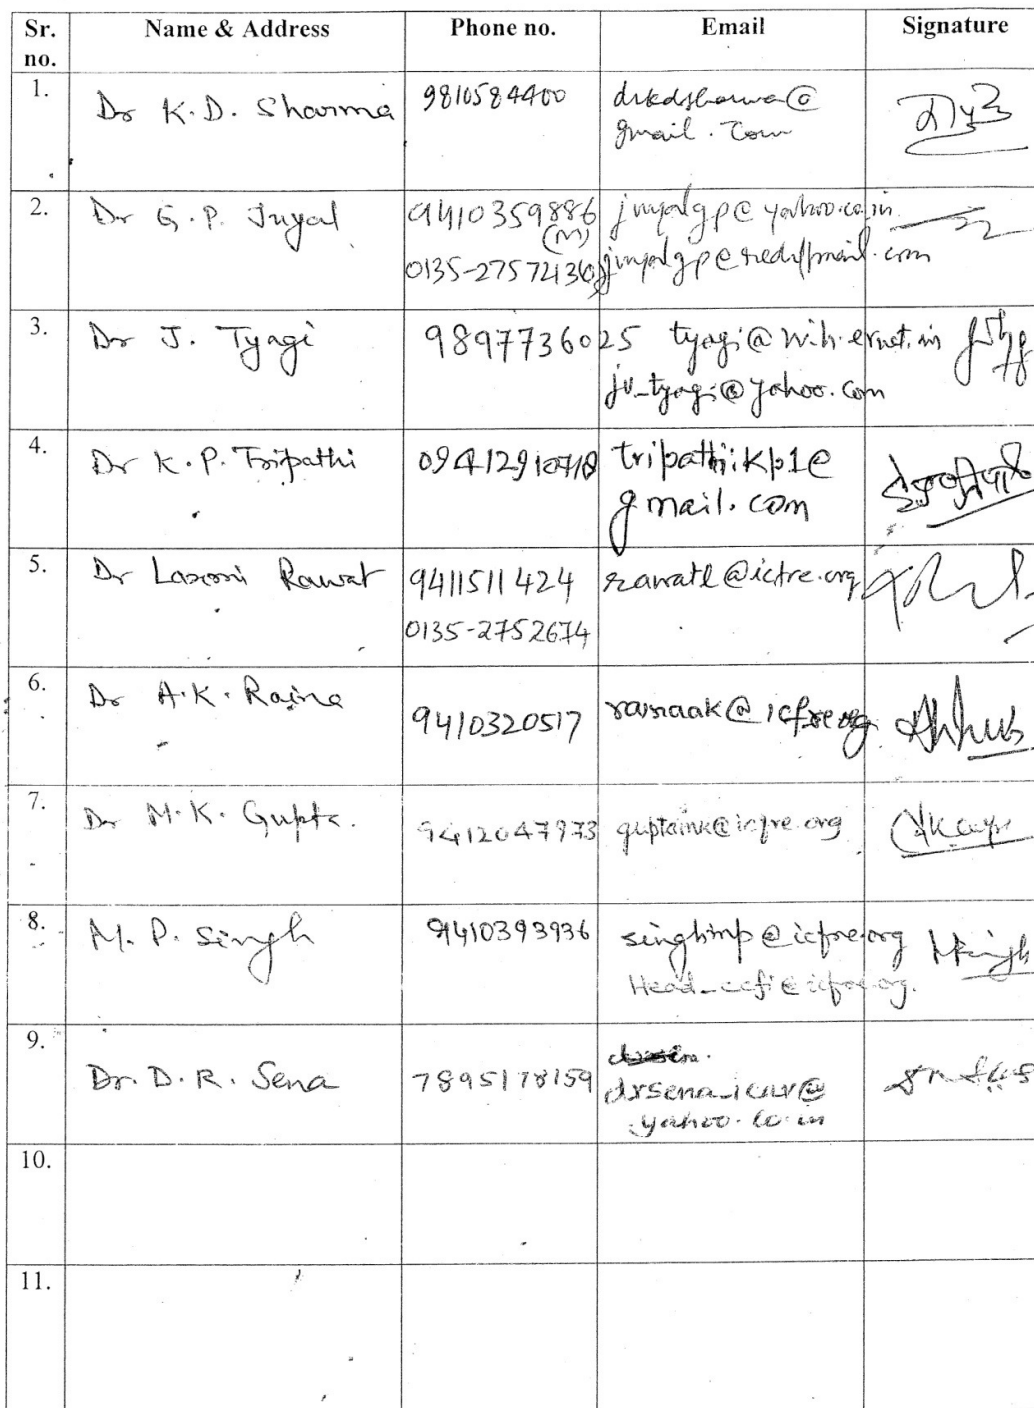 Sr. no. Name & Address Phone no. Email Signature
1. Dr K.D. Sharma 9810584400 drkdsharma@
gmail.com
2. Dr G.P. Juyal 09410359886 juyalgp@yahoo.co.in
(M)
0135-2757213 juyalgp@rediffmail.com
3. Dr J. Tyagi 9897736025 tyagi@nih.ernet.in
jv_tyagi@yahoo.com
4. Dr K.P. Tripathi 09412910718 tripathi.kp1@
gmail.com
5. Dr Laxmi Rawat 9411511424 rawatl@icfre.org
0135-2752674
6. Dr A.K. Raina 9410320517 rainaak@icfre.org
7. Dr M.K. Gupta. 9412047973 guptamk@icfre.org
8. M.P. Singh 9410393936 singhmp@icfre.org MPSingh
Head_ccfi@icfre.org.
9. Dr. D.R. Sena 7895178159 drsena_icar@
yahoo.co.in
10.
11.